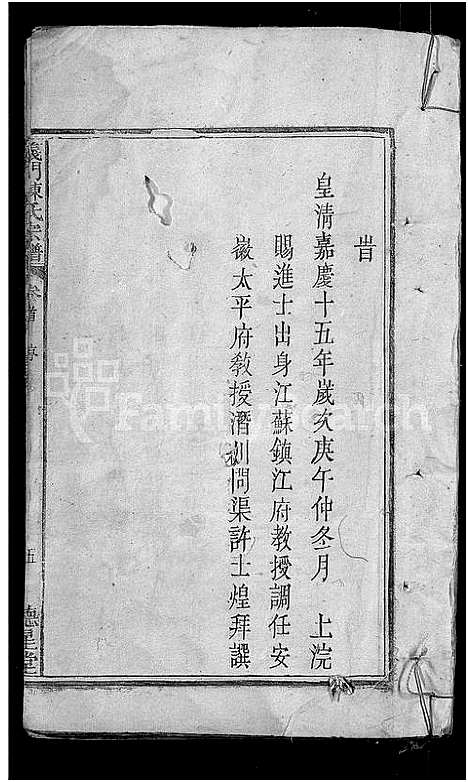 旹
皇清嘉慶十五年歲次庚午仲冬月 上浣
賜進士出身江蘇鎮江府教授調任安
徽太平府教授潛川問渠許士煌拜譔
義門陳氏宗譜 卷首 五 德星堂
FamilySearch